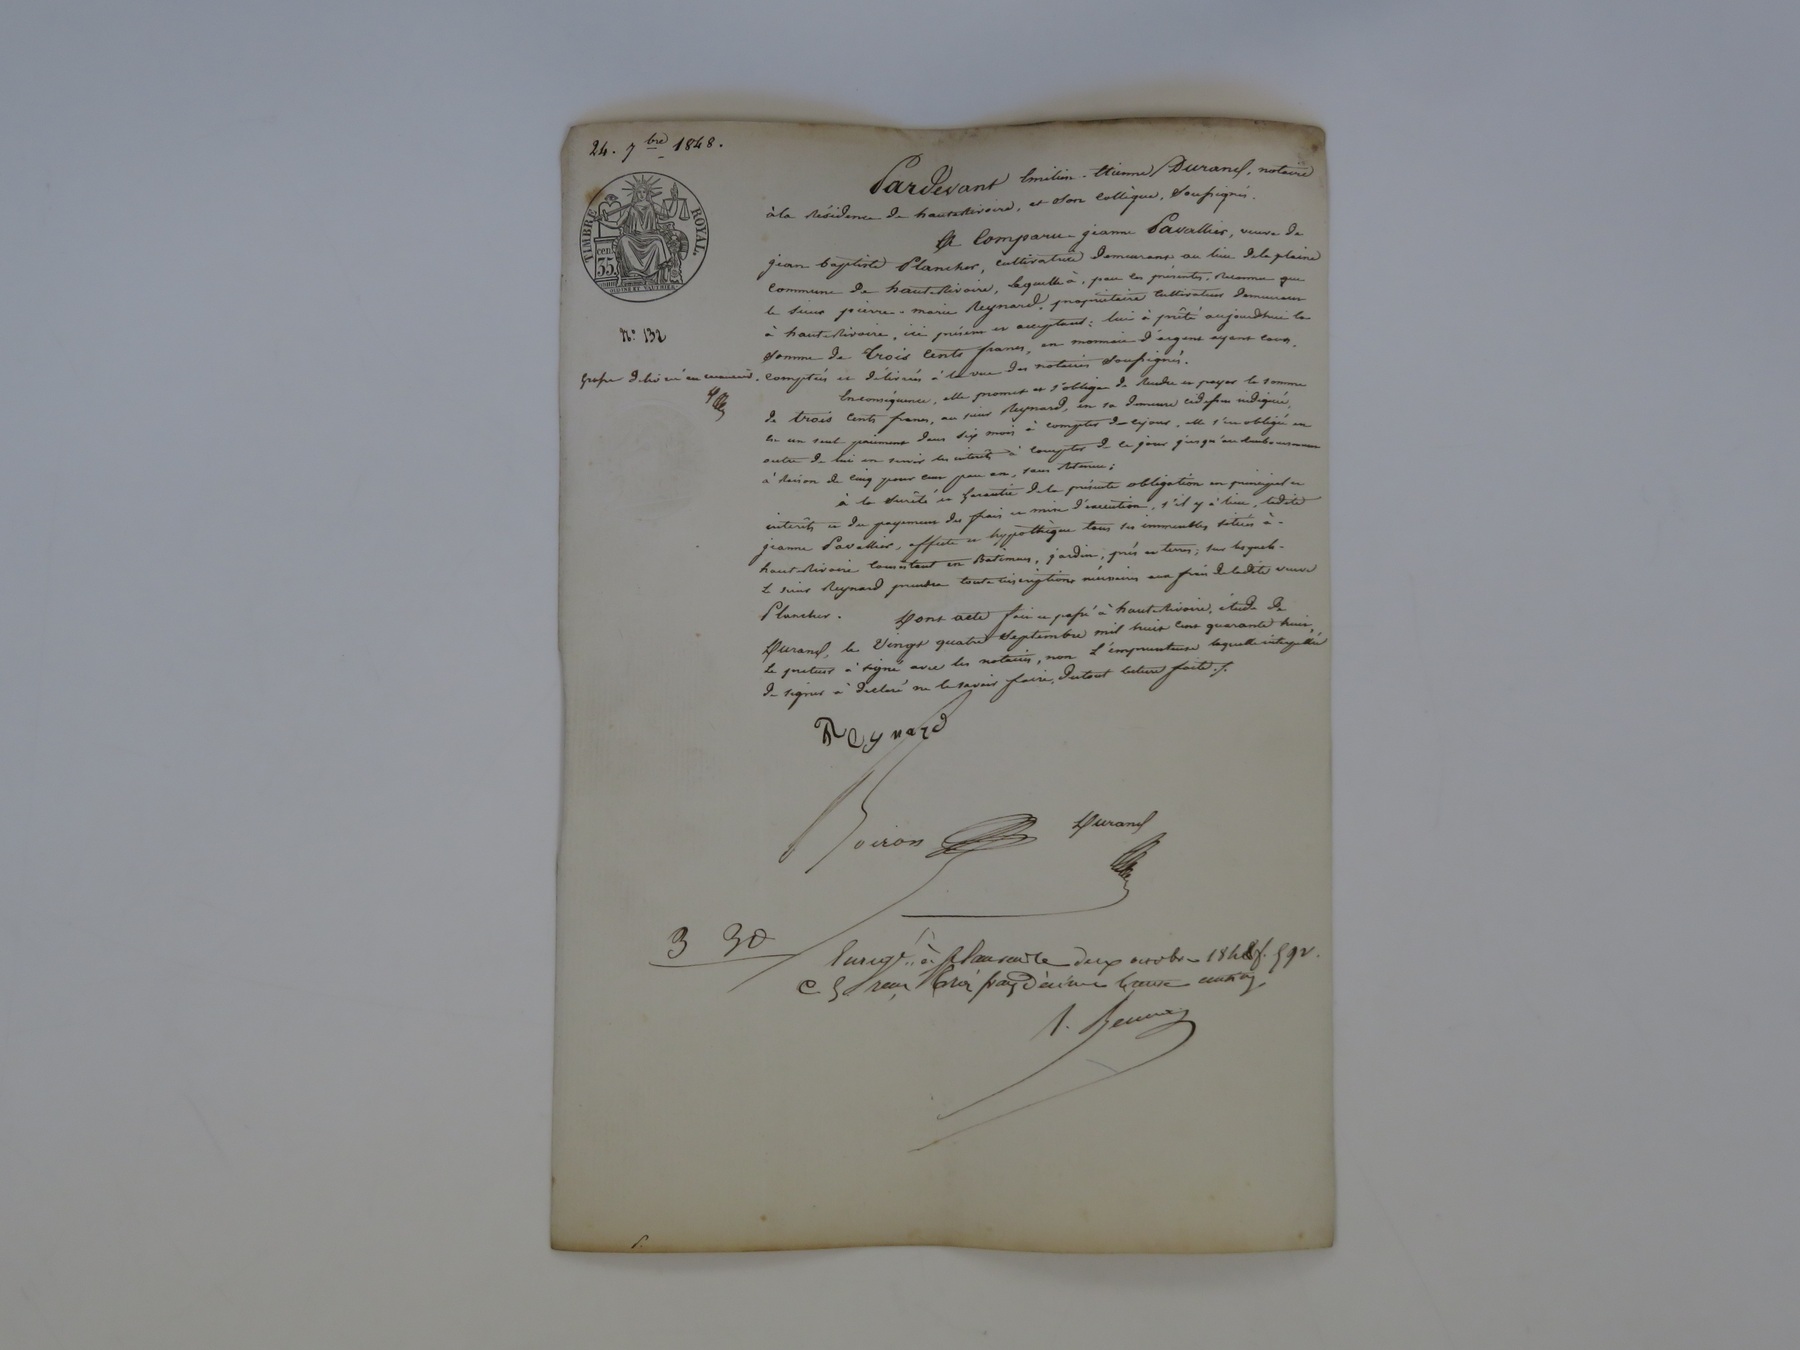 24. 7bre 1848.
TIMBRE ROYAL
cen. 35
N° 132
Grosse délivrée au créancier.
Pardevant Emilien-Etienne Durand, notaire
à la résidence de haute-Rivoire, et son collègue, soussignés.
A Comparu jeanne Pavallier, veuve de
jean baptiste Plancher, cultivatrice demeurant au lieu de la plaine
commune de haute-Rivoire, laquelle à, par ces présentes, reconnu que
le sieur pierre-marie Reynard, propriétaire cultivateur demeurant
à haute-Rivoire, ici présent et acceptant; lui à prêté aujourd'hui la
somme de trois cents francs, en monnaie d'argent ayant cours,
comptés et délivrés à la vue des notaires soussignés.
En conséquence, elle promet et s'oblige de rendre et payer la somme
de trois cents francs, au sieur Reynard, en sa demeure cidessus indiquée,
en un seul paiement dans six mois à compter de cejour, elle s'en oblige en
outre de lui en servir les intérêts à compter de ce jour jusqu'au remboursement
à raison de cinq pour cent par an, sans retenue;
à la sureté et garantie de la présente obligation en principal et
intérêts et du payement des frais et mise d'exécution, s'il y à lieu, ladite
jeanne Pavallier, affecte et hypothèque tous ses immeubles situés à
haute-Rivoire consistant en Batimens, jardin, prés et terres; sur lesquels
le sieur Reynard prendra toute inscriptions nécessaires aux frais de ladite veuve
Plancher. Dont acte fait et passé à haute-Rivoire, étude de
Durand, le vingt quatre septembre mil huit cent quarante huit,
le preteur à signé avec les notaires, non l'emprunteuse laquelle interpellée
de signer à déclaré ne le savoir faire, du tout lecture faite./.
Reynard
Boiron Durand
3 30
Enregé. à deux octobre 1848 f. 59 v.
C 5 reçu trois francs Décime trente centimes